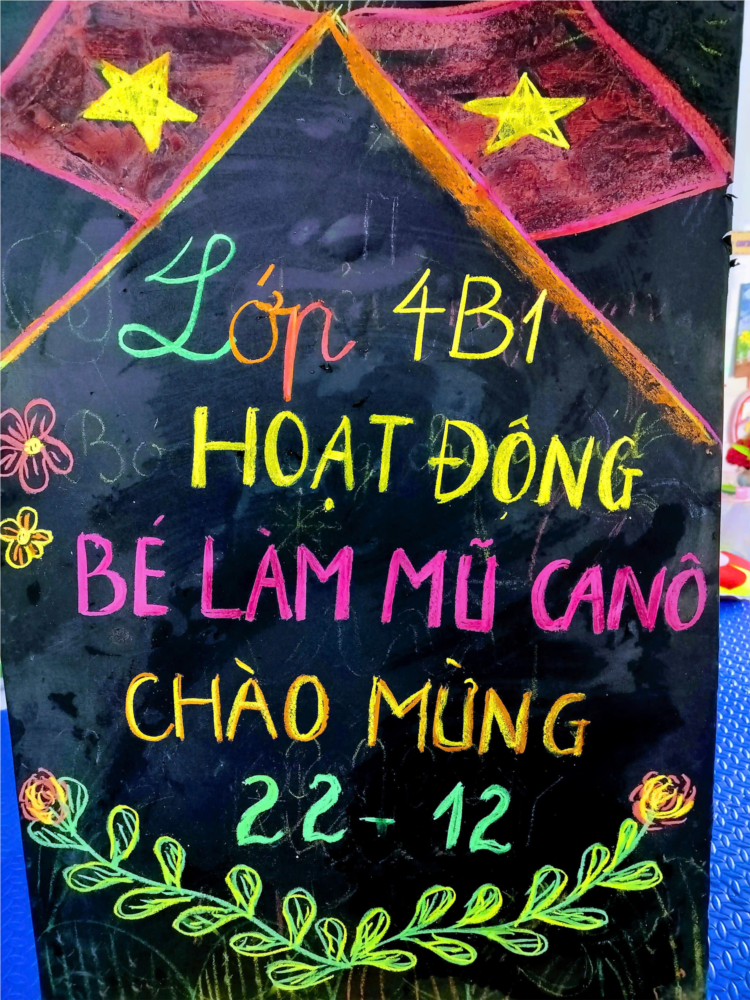 Lớp 4B1
HOẠT ĐỘNG
BÉ LÀM MŨ CANÔ
CHÀO MỪNG
22-12